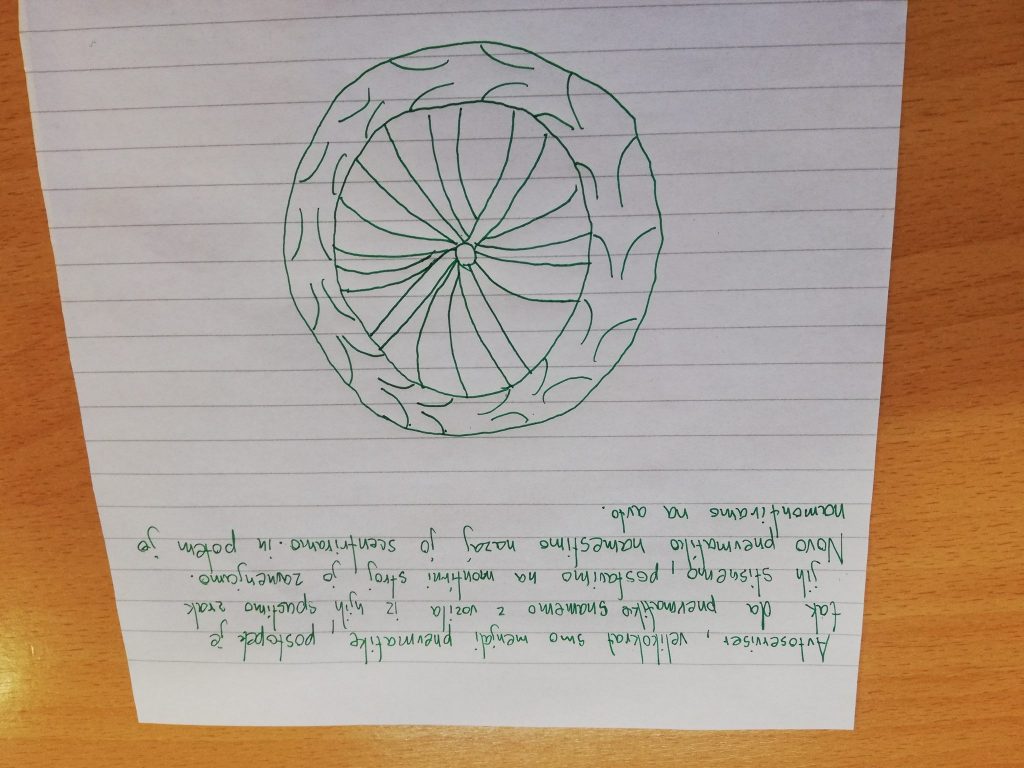 Avtoserviser, velikokrat smo menjali pnevmatike, postopek je
tak da pnevmatiko snamemo z vozila iz njih spustimo zrak
jih stisnemo, postavimo na montirni stroj, jo zamenjamo.
Novo pnevmatiko namestimo nazaj jo scentriramo. in potem jo
namontiramo na avto.